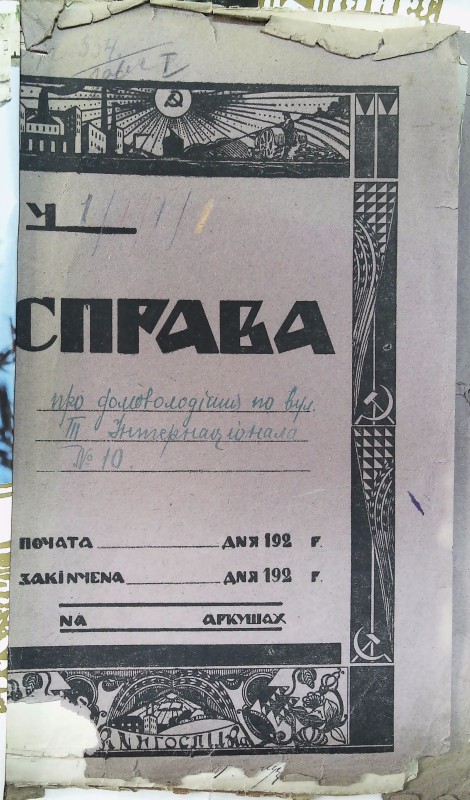 334
Ч 1/111/1
СПРАВА
про домоволодіння по вул.
III Інтернаціонала
№ 10.
ПОЧАТА ДНЯ 192 Р.
ЗАКІНЧЕНА ДНЯ 192 Р.
НА АРКУШАХ
КНИГОСПІЛКА